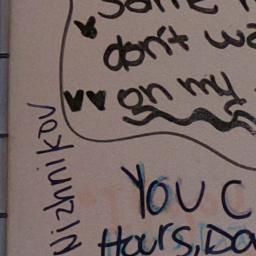 some
don't wa
on my
Nizhnikov
YOU C
Hours, Da